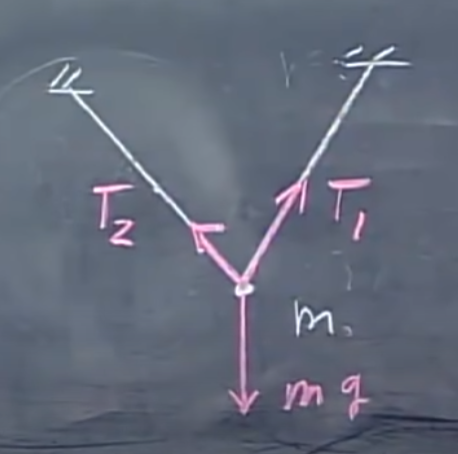 T₂
T₁
m.
mg